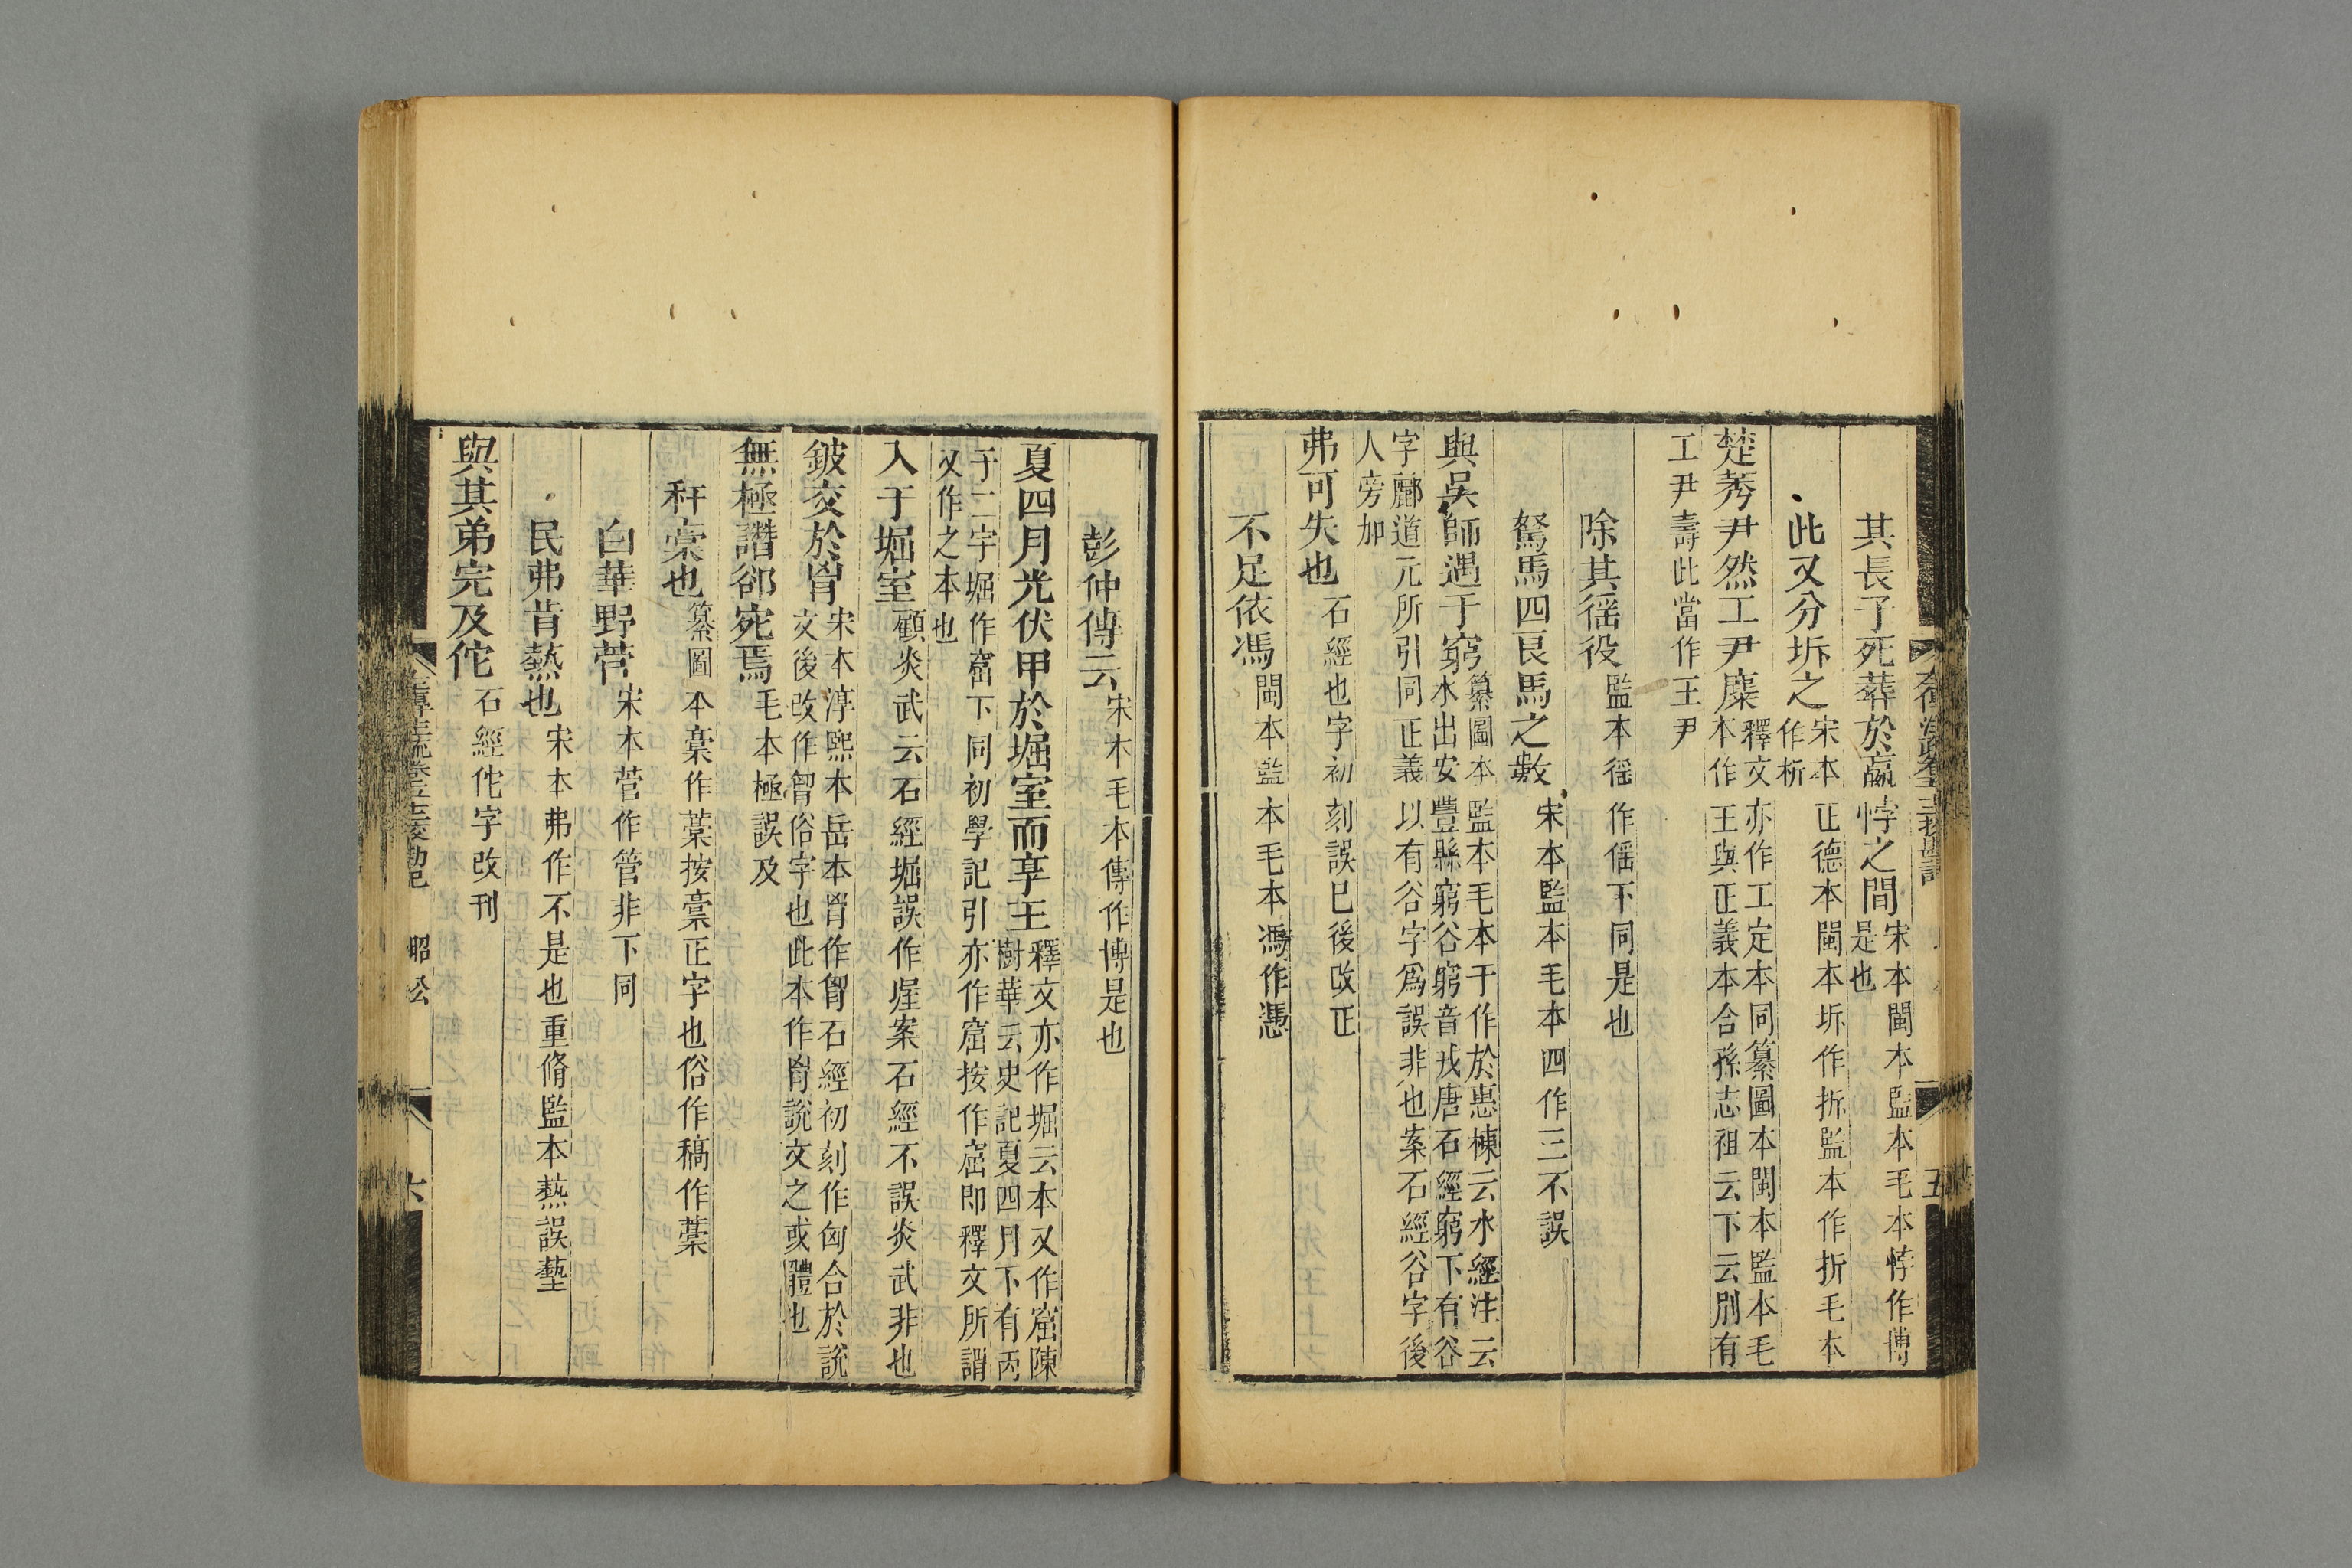 其長子死葬於嬴愽之間宋本閩本監本毛本愽作博
是也
此又分坼之宋本正德本閩本坼作拆監本作折毛本
作析
楚莠尹然工尹麇釋文亦作工定本同纂圖本閩本監本毛
本作王與正義本合孫志祖云下云別有
工尹壽此當作王尹
除其徭役監本徭作傜下同是也
駑馬四艮馬之數宋本監本毛本四作三不誤
與吳師遇于窮纂圖本監本毛本于作於惠棟云水經注云
水出安豐縣窮谷窮音戎唐石經窮下有谷
字酈道元所引同正義以有谷字爲誤非也案石經谷字後
人旁加
弗可失也石經也字初刻誤巳後改正
不足依馮閩本監本毛本馮作憑
彭仲傳云宋本毛本傳作博是也
夏四月光伏甲於堀室而享王釋文亦作堀云本又作窟陳
樹華云史記夏四月下有丙
子二字堀作窟下同初學記引亦作窟按作窟即釋文所謂
又作之本也
入于堀室顧炎武云石經堀誤作崫案石經不誤炎武非也
鈹交於胷宋本淳熙本岳本胷作胸石經初刻作匈合於說
文後改作胷俗字也此本作胷說文之或體也
無極譖郤宛焉毛本極誤及
秆稾也纂圖本稾作藁按稾正字也俗作稿作藁
白華野菅宋本菅作管非下同
民弗肯爇也宋本弗作不是也重脩監本爇誤蓺
與其弟完及佗石經佗字改刊
左傳注疏卷五十二校勘記 昭公 六